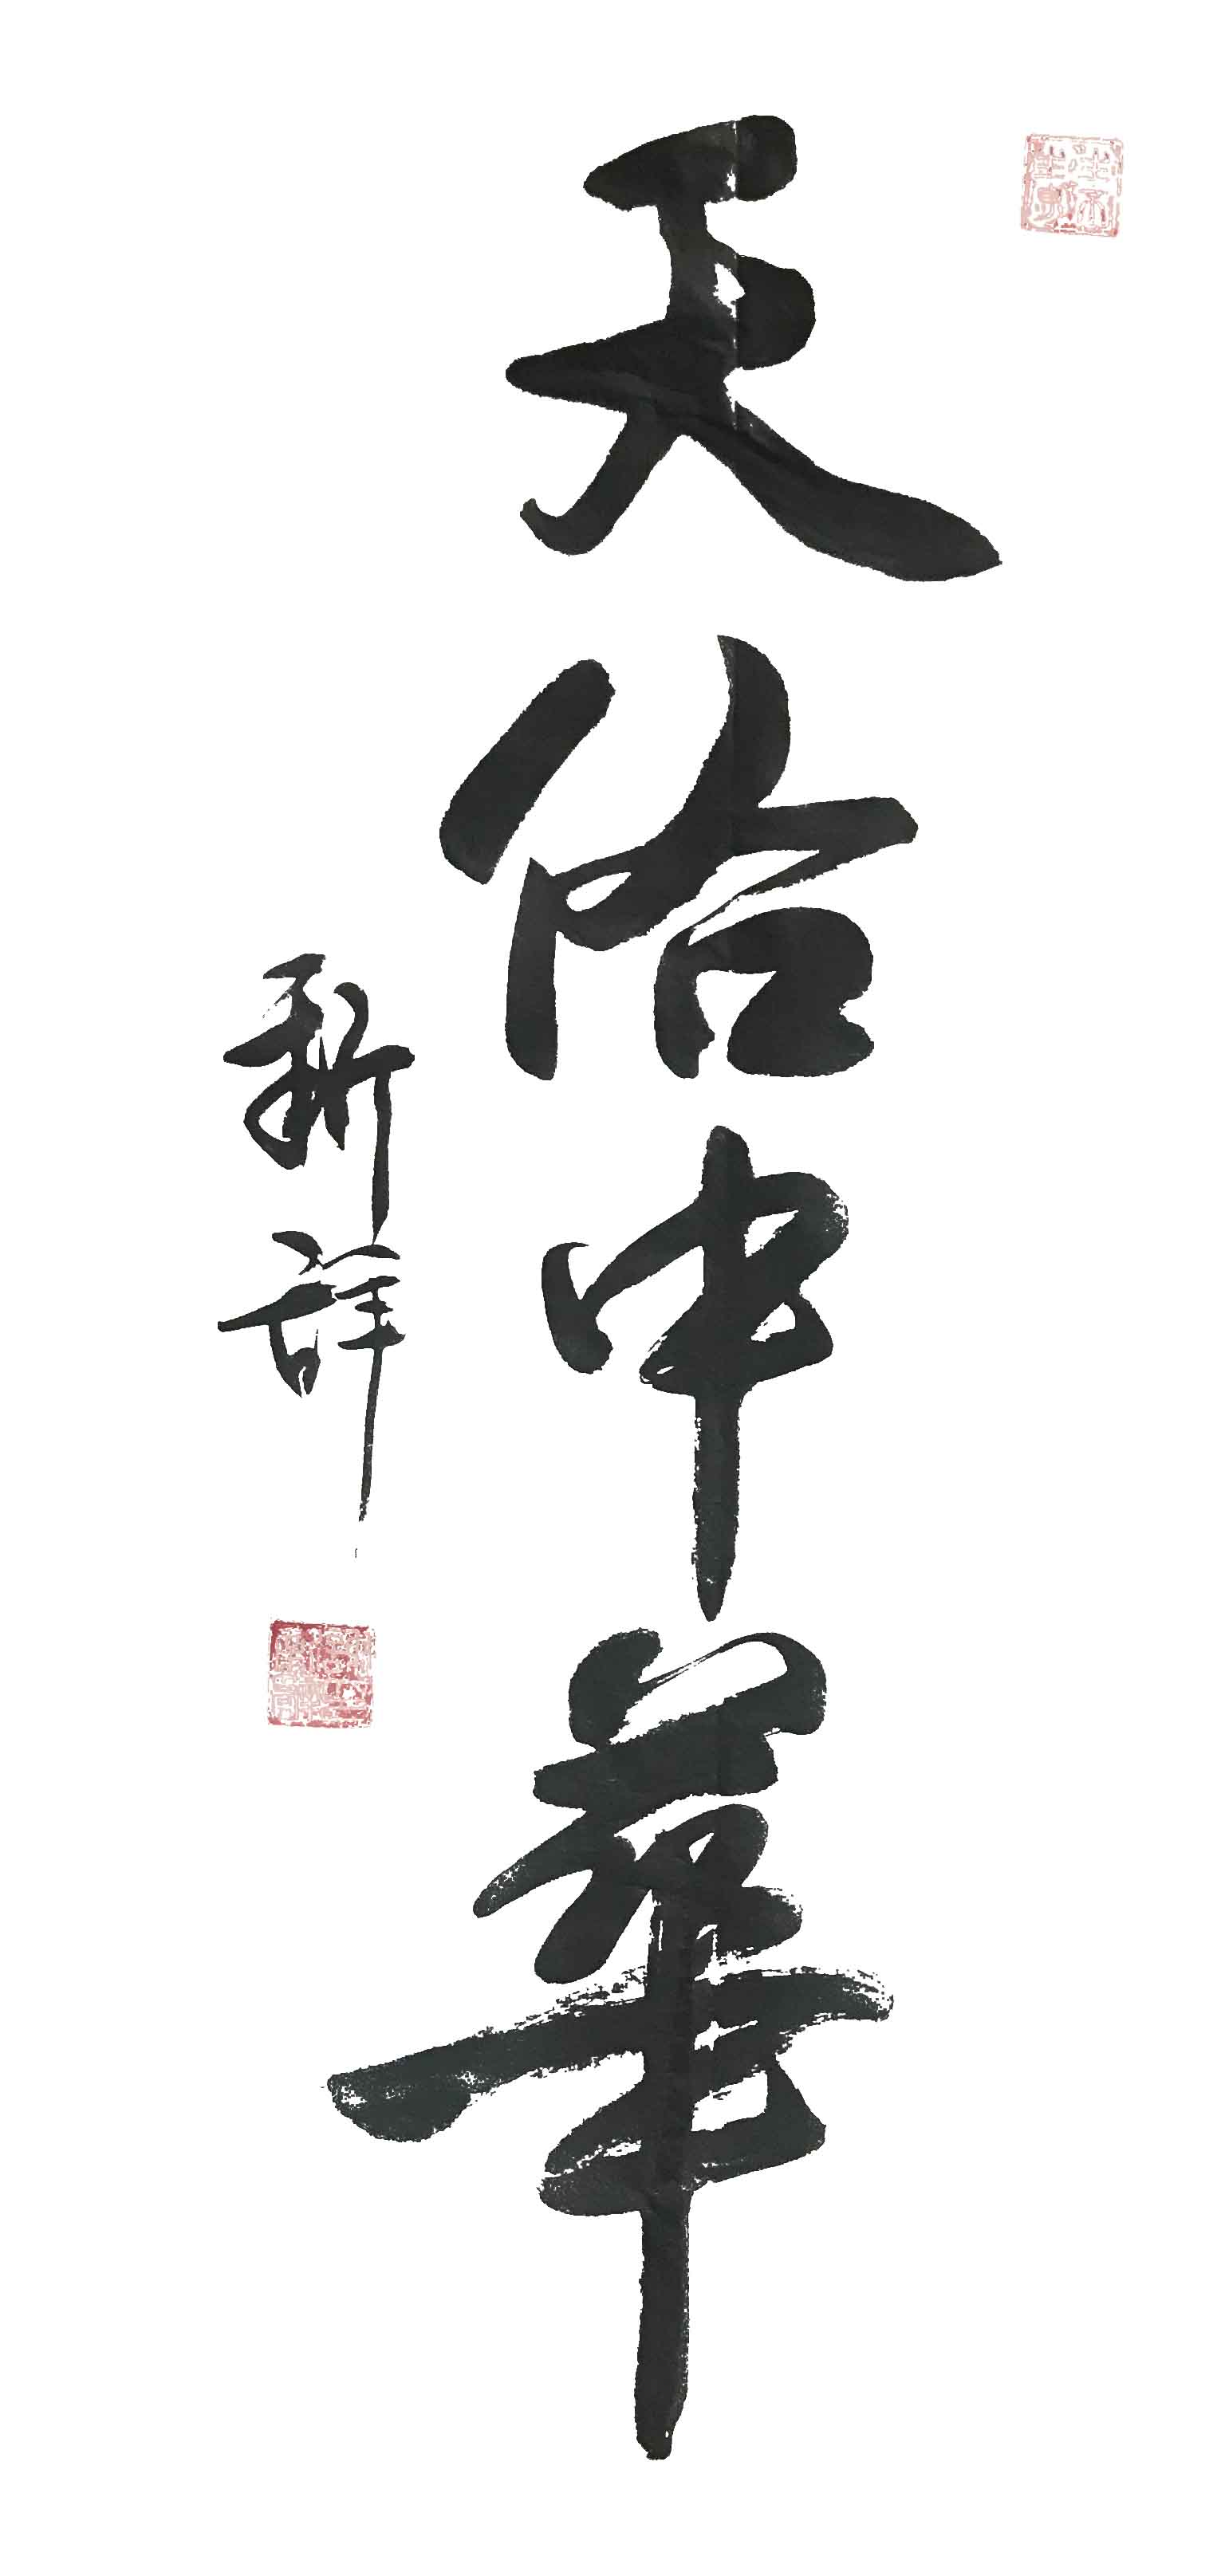 天佑中華
新辞